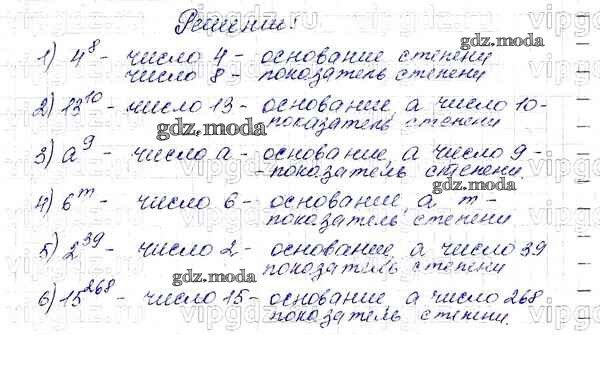 Решение:
1) 4⁸ - число 4 - основание степени
число 8 - показатель степени
2) 13¹⁰ - число 13 - основание, а число 10 -
показатель степени
3) a⁹ - число a - основание, а число 9 -
- показатель степени.
4) 6ᵐ - число 6 - основание, а m -
показатель степени
5) 2³⁹ - число 2 - основание, а число 39
показатель степени
6) 15²⁶⁸ - число 15 - основание, а число 268
показатель степени.
gdz.moda
gdz.moda
gdz.moda
gdz.moda
gdz.moda
vipgdz.ru